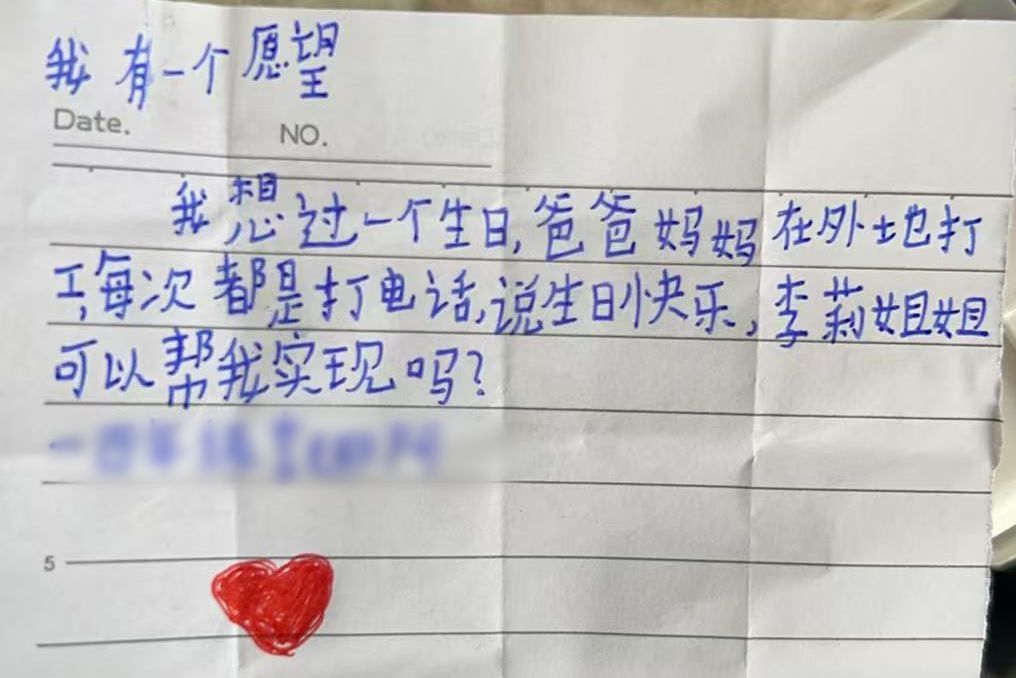 我有一个愿望
Date.
NO.
我想过一个生日,爸爸妈妈在外地打
工,每次都是打电话,说生日快乐,李莉姐姐
可以帮我实现吗?
5